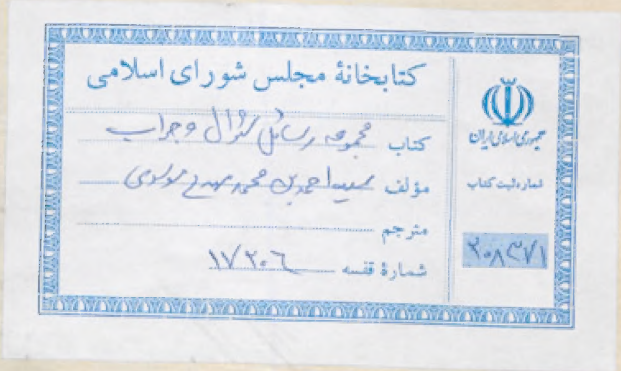 کتابخانهٔ مجلس شورای اسلامی
کتاب مجموعه رسائل سؤال و جواب
مؤلف سید احمد بن محمد مهدی موسوی
مترجم
شمارهٔ قفسه ۱۷۳۰۶
جمهوری اسلامی ایران
شماره ثبت کتاب
۲۰۸۳۷۱